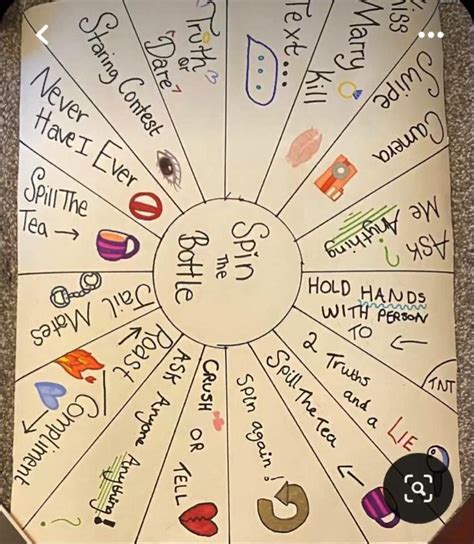 Spin
The
Bottle
Truth
or
Dare
Text...
Kiss
Marry
Kill
Swipe
Camera
Ask
Me
Anything
?
HOLD HANDS
WITH PERSON
TO
TNT
2 Truths and a
LIE
Spill The Tea
Spin again!
CRUSH OR TELL
ASK Anyone Anything!
?
Roast
Compliment
Jail Mates
Spill The
Tea
Never
Have I Ever
Staring Contest